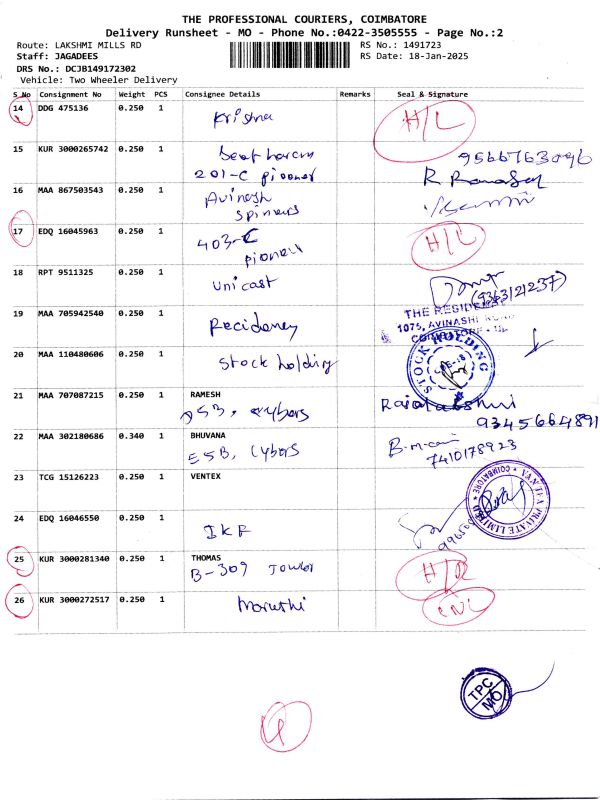 THE PROFESSIONAL COURIERS, COIMBATORE
Delivery Runsheet - MO - Phone No.:0422-3505555 - Page No.:2
Route: LAKSHMI MILLS RD RS No.: 1491723
Staff: JAGADEES RS Date: 18-Jan-2025
DRS No.: DCJB149172302
Vehicle: Two Wheeler Delivery
S No Consignment No Weight PCS Consignee Details Remarks Seal & Signature
14 DDG 475136 0.250 1 Krishna H/L
15 KUR 3000265742 0.250 1 9566763096
201-C pioneer
16 MAA 867503543 0.250 1 Avinash
Spinners
17 EDQ 16045963 0.250 1 403-C H/L
pioneer
18 RPT 9511325 0.250 1 Unicast
(9363121237)
19 MAA 705942540 0.250 1 Recidency THE RESIDENCY
1075, AVINASHI ROAD
COIMBATORE
20 MAA 110480606 0.250 1 Stock holding STOCK HOLDING
21 MAA 707087215 0.250 1 RAMESH
Rajalakshmi
9345664891
22 MAA 302180686 0.340 1 BHUVANA
ESB, Cybers 7410178923
23 TCG 15126223 0.250 1 VENTEX
PRIVATE LIMITED COIMBATORE
24 EDQ 16046550 0.250 1 IKF
25 KUR 3000281340 0.250 1 THOMAS
B-309 Tower
26 KUR 3000272517 0.250 1 Maruthi CNL
TPC
MO
4